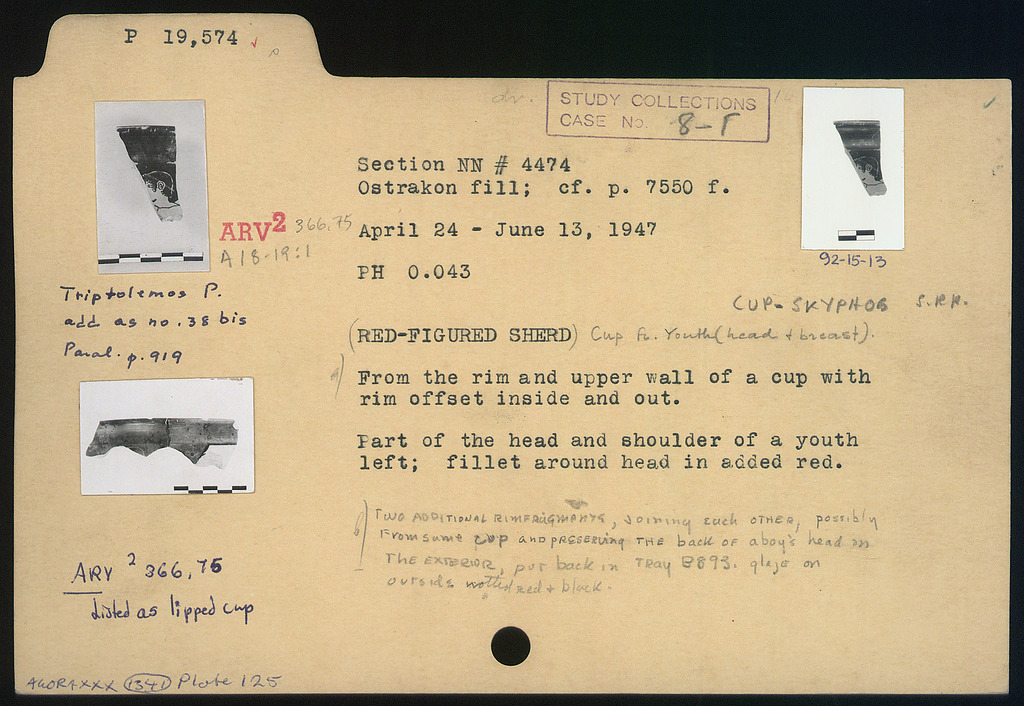 P 19,574
STUDY COLLECTIONS
CASE No. 8-Γ
Section NN # 4474
Ostrakon fill; cf. p. 7550 f.
ARV2 366,75
A 18-19:1
April 24 - June 13, 1947
PH 0.043
92-15-13
Triptolemos P.
add as no. 38 bis
Paral. p. 919
CUP-SKYPHOS S.R.R.
(RED-FIGURED SHERD) Cup fr. Youth (head + breast).
a) From the rim and upper wall of a cup with
rim offset inside and out.
Part of the head and shoulder of a youth
left; fillet around head in added red.
b) TWO ADDITIONAL RIMFRAGMENTS, Joining each OTHER, possibly
From same cup AND PRESERVING THE back OF a boy's head on
THE EXTERIOR, put back in TRAY B893. glaze on
outside mottled red + black.
ARV 2 366,75
Listed as lipped cup
AGORA XXX 1341 Plate 125